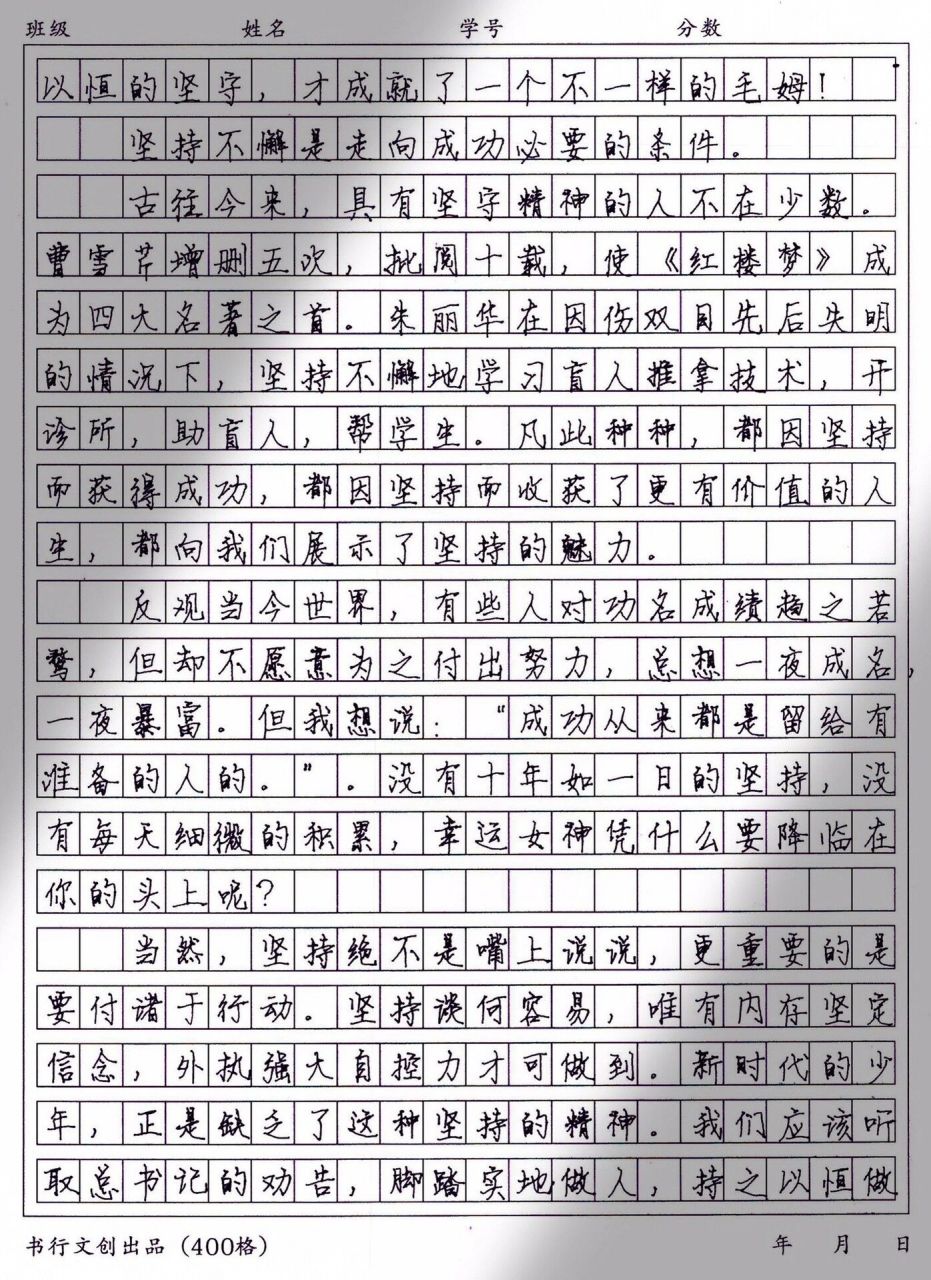 班级 姓名 学号 分数
以恒的坚守，才成就了一个不一样的毛姆！
坚持不懈是走向成功必要的条件。
古往今来，具有坚守精神的人不在少数。
曹雪芹增删五次，批阅十载，使《红楼梦》成
为四大名著之首。朱丽华在因伤双目先后失明
的情况下，坚持不懈地学习盲人推拿技术，开
诊所，助盲人，帮学生。凡此种种，都因坚持
而获得成功，都因坚持而收获了更有价值的人
生，都向我们展示了坚持的魅力。
反观当今世界，有些人对功名成绩趋之若
鹜，但却不愿意为之付出努力，总想一夜成名，
一夜暴富。但我想说：“成功从来都是留给有
准备的人的。”。没有十年如一日的坚持，没
有每天细微的积累，幸运女神凭什么要降临在
你的头上呢？
当然，坚持绝不是嘴上说说，更重要的是
要付诸于行动。坚持谈何容易，唯有内存坚定
信念，外执强大自控力才可做到。新时代的少
年，正是缺乏了这种坚持的精神。我们应该听
取总书记的劝告，脚踏实地做人，持之以恒做
书行文创出品（400格） 年 月 日